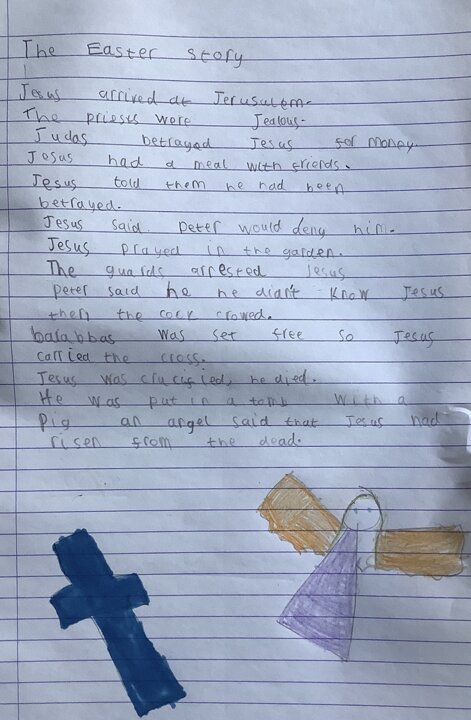 The Easter story
Jesus arrived at Jerusulem.
The priests were Jealous.
Judas betrayed Jesus for money.
Jesus had a meal with friends.
Jesus told them he had been
betrayed.
Jesus said Peter would deny him.
Jesus prayed in the garden.
The guards arrested Jesus
Peter said he he didn't know Jesus
then the cock crowed.
barabbas was set free so Jesus
carried the cross.
Jesus was crucified, he died.
He was put in a tomb with a
Pig an angel said that Jesus had
risen from the dead.